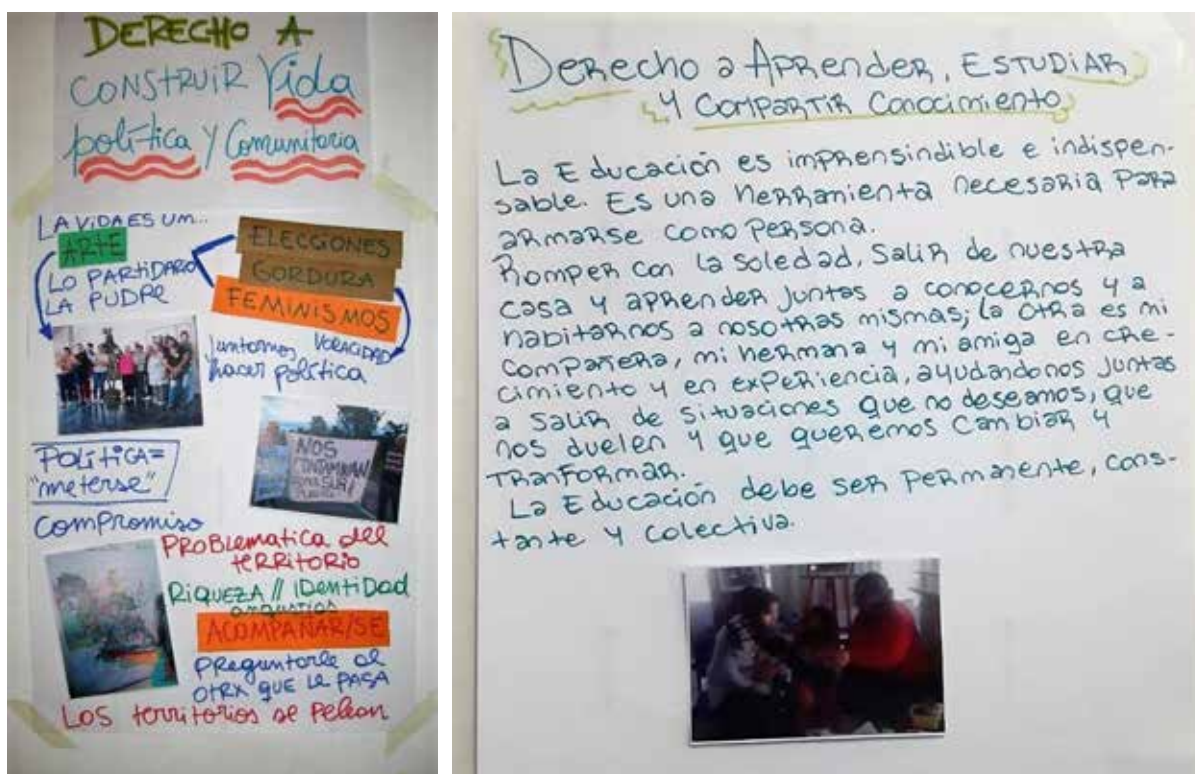 DERECHO A
CONSTRUIR Vida
política Y Comunitaria
LA VIDA ES UM...
ARTE
LO PARTIDARO
LA PUDRE
ELECCIONES
GORDURA
FEMINISMOS
Juntarnos VORACIDAD
hacer política
NOS
CONTAMINAN
POLÍTICA=
"meterse"
Compromiso
PROBLEMATICA del
teRRitoRio
RIQUEZA // IDentiDad
angustias
ACOMPAÑAR/SE
PReguntarle al
OTRX QUE LE PASA
LOS territorios se Pelean
Derecho a Aprender, ESTUDIAR
Y COMPARTIR Conocimiento
La Educación es imprensindible e indispen-
sable. Es una herramienta necesaria para
armarse como persona.
Romper con la soledad, Salir de nuestra
casa y aprender juntas a conocernos y a
habitarnos a nosotras mismas; la otra es mi
compañera, mi hermana y mi amiga en cre-
cimiento y en experiencia, ayudandonos juntas
a salir de situaciones que no deseamos, que
nos duelen y que queremos cambiar y
tranformar.
La Educación debe ser permanente, cons-
tante y colectiva.